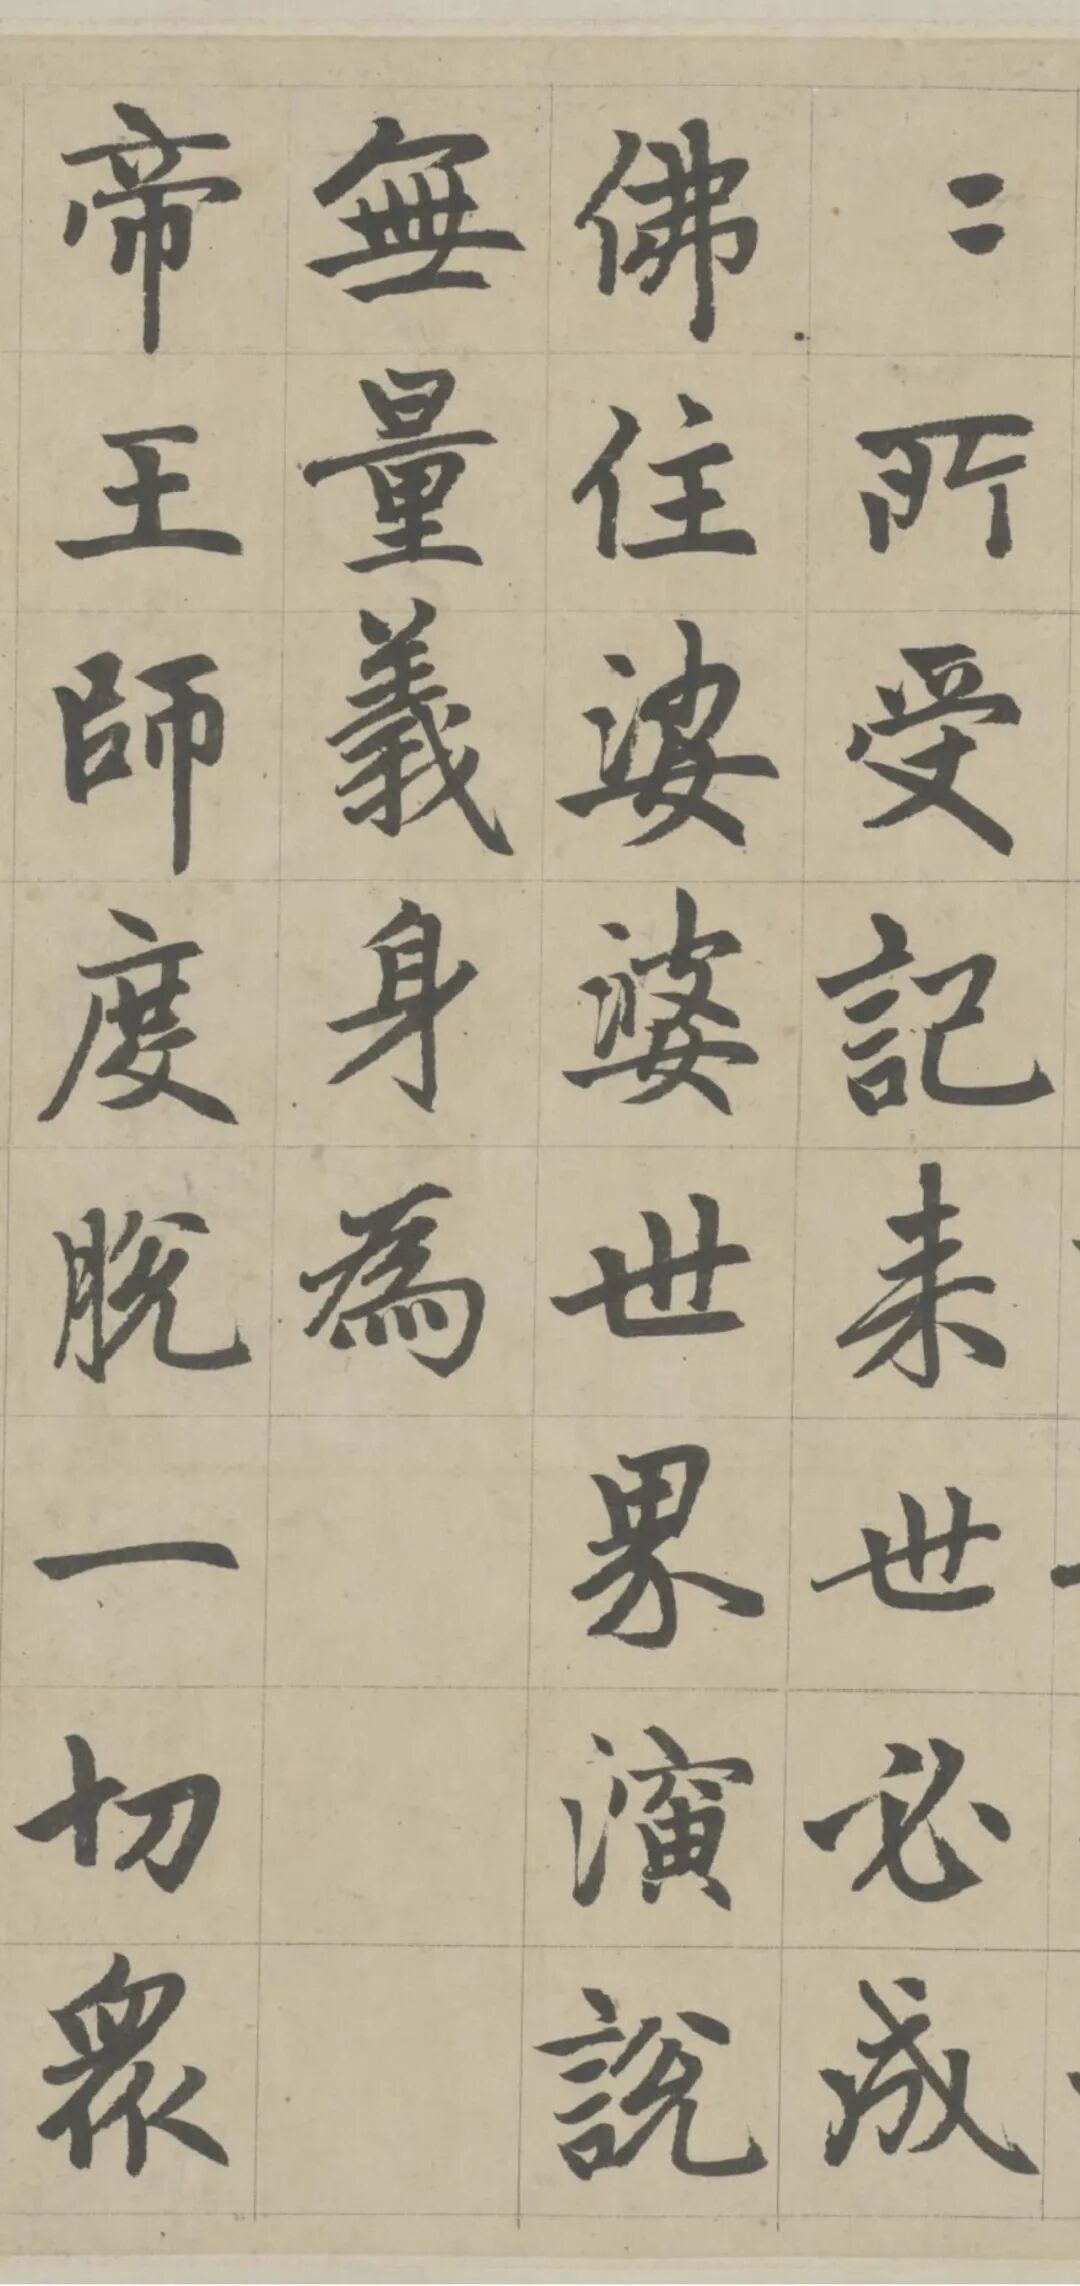 〻所受記来世必成
佛住娑婆世界演說
無量義身為
帝王師度脫一切眾